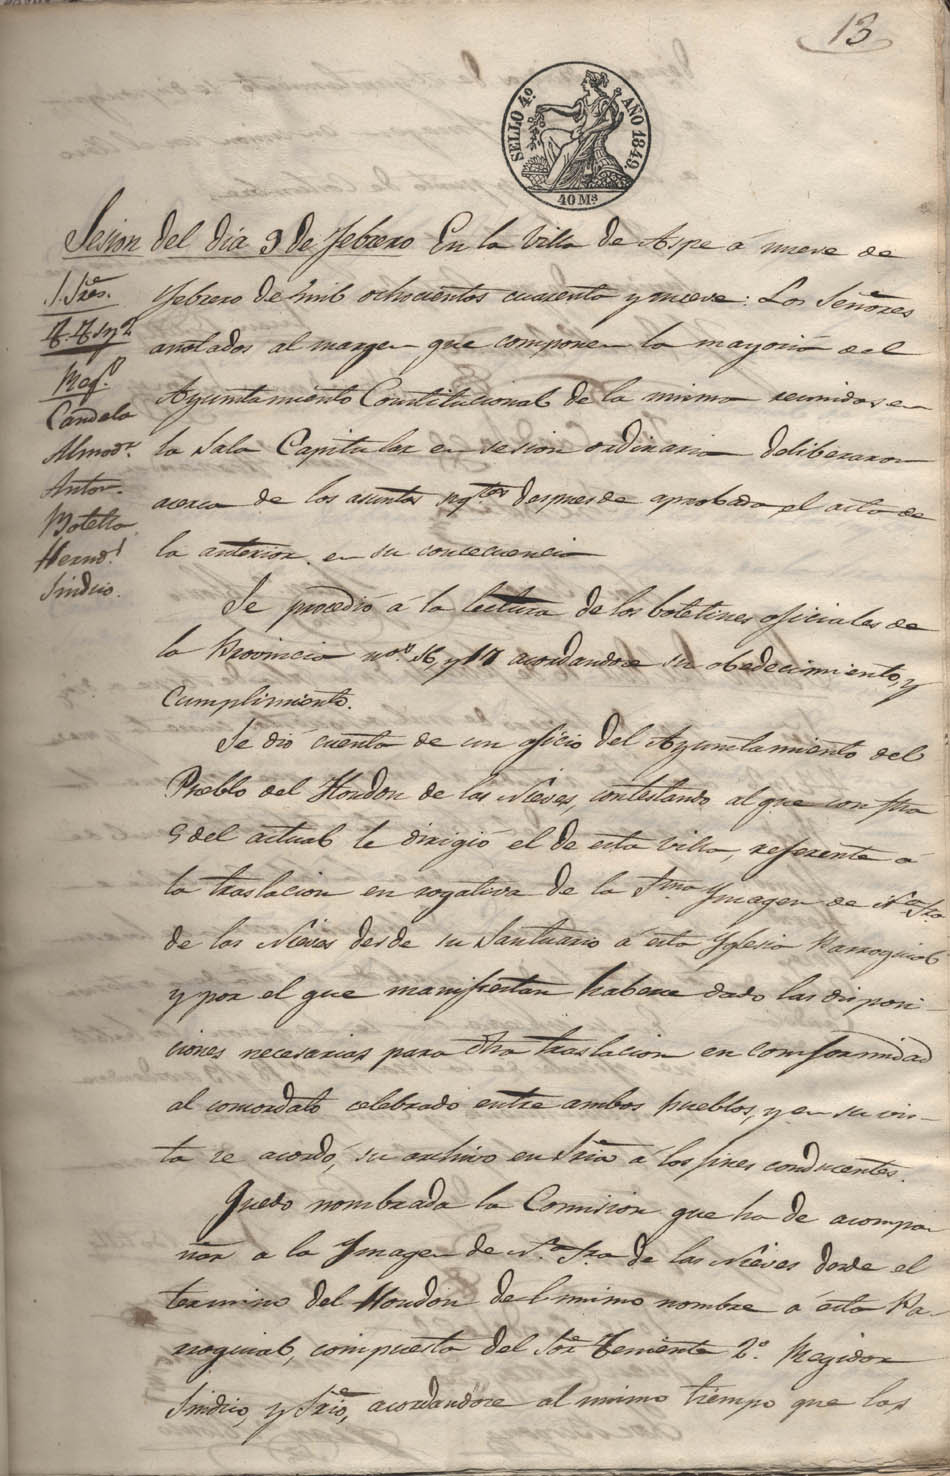 13
SELLO 4º AÑO 1849.
40 Ms
Sesion del dia 9 de Febrero En la Villa de Aspe á nueve de
S. Sres.
Febrero de mil ochocientos cuarenta y nueve: Los Señores
T. T. 1º y 2º
anotados al margen que componen la mayoria del
Regs
Ayuntamiento Constitucional de la misma reunidos en
Candela
la Sala Capitular en sesion ordinaria deliberaron
Almodr
Anton
acerca de los asuntos sigtes despues de aprobada el acta de
Botella
la anterior, en su concecuencia
Hernd
Sindico.
Se procedió á la lectura de los boletines oficiales de
la Provincia nos 16 y 17 acordandose su obedecimiento, y
cumplimiento.
Se dió cuenta de un oficio del Ayuntamiento del
Pueblo del Hondon de las Nieves, contestando al que con fha
5 del actual le dirigió el de esta villa, referente á
la traslacion en rogativa de la Sma Ymagen de Na Sra
de las Nieves desde su Santuario á esta Yglesia Parroquial
y por el que manifiestan haberse dado las disposi-
ciones necesarias para dha traslacion en conformidad
al concordato celebrado entre ambos pueblos, y en su vis-
ta se acordó, su archivo en Sria á los fines conducentes.
Quedo nombrada la Comision que ha de acompa-
ñar a la Ymagen de Na Sra de las Nieves desde el
termino del Hondon del mismo nombre á esta Pa-
rroquial, compuesta del Sor Teniente 2º Regidor
Sindico, y Srio, acordandose al mismo tiempo que los